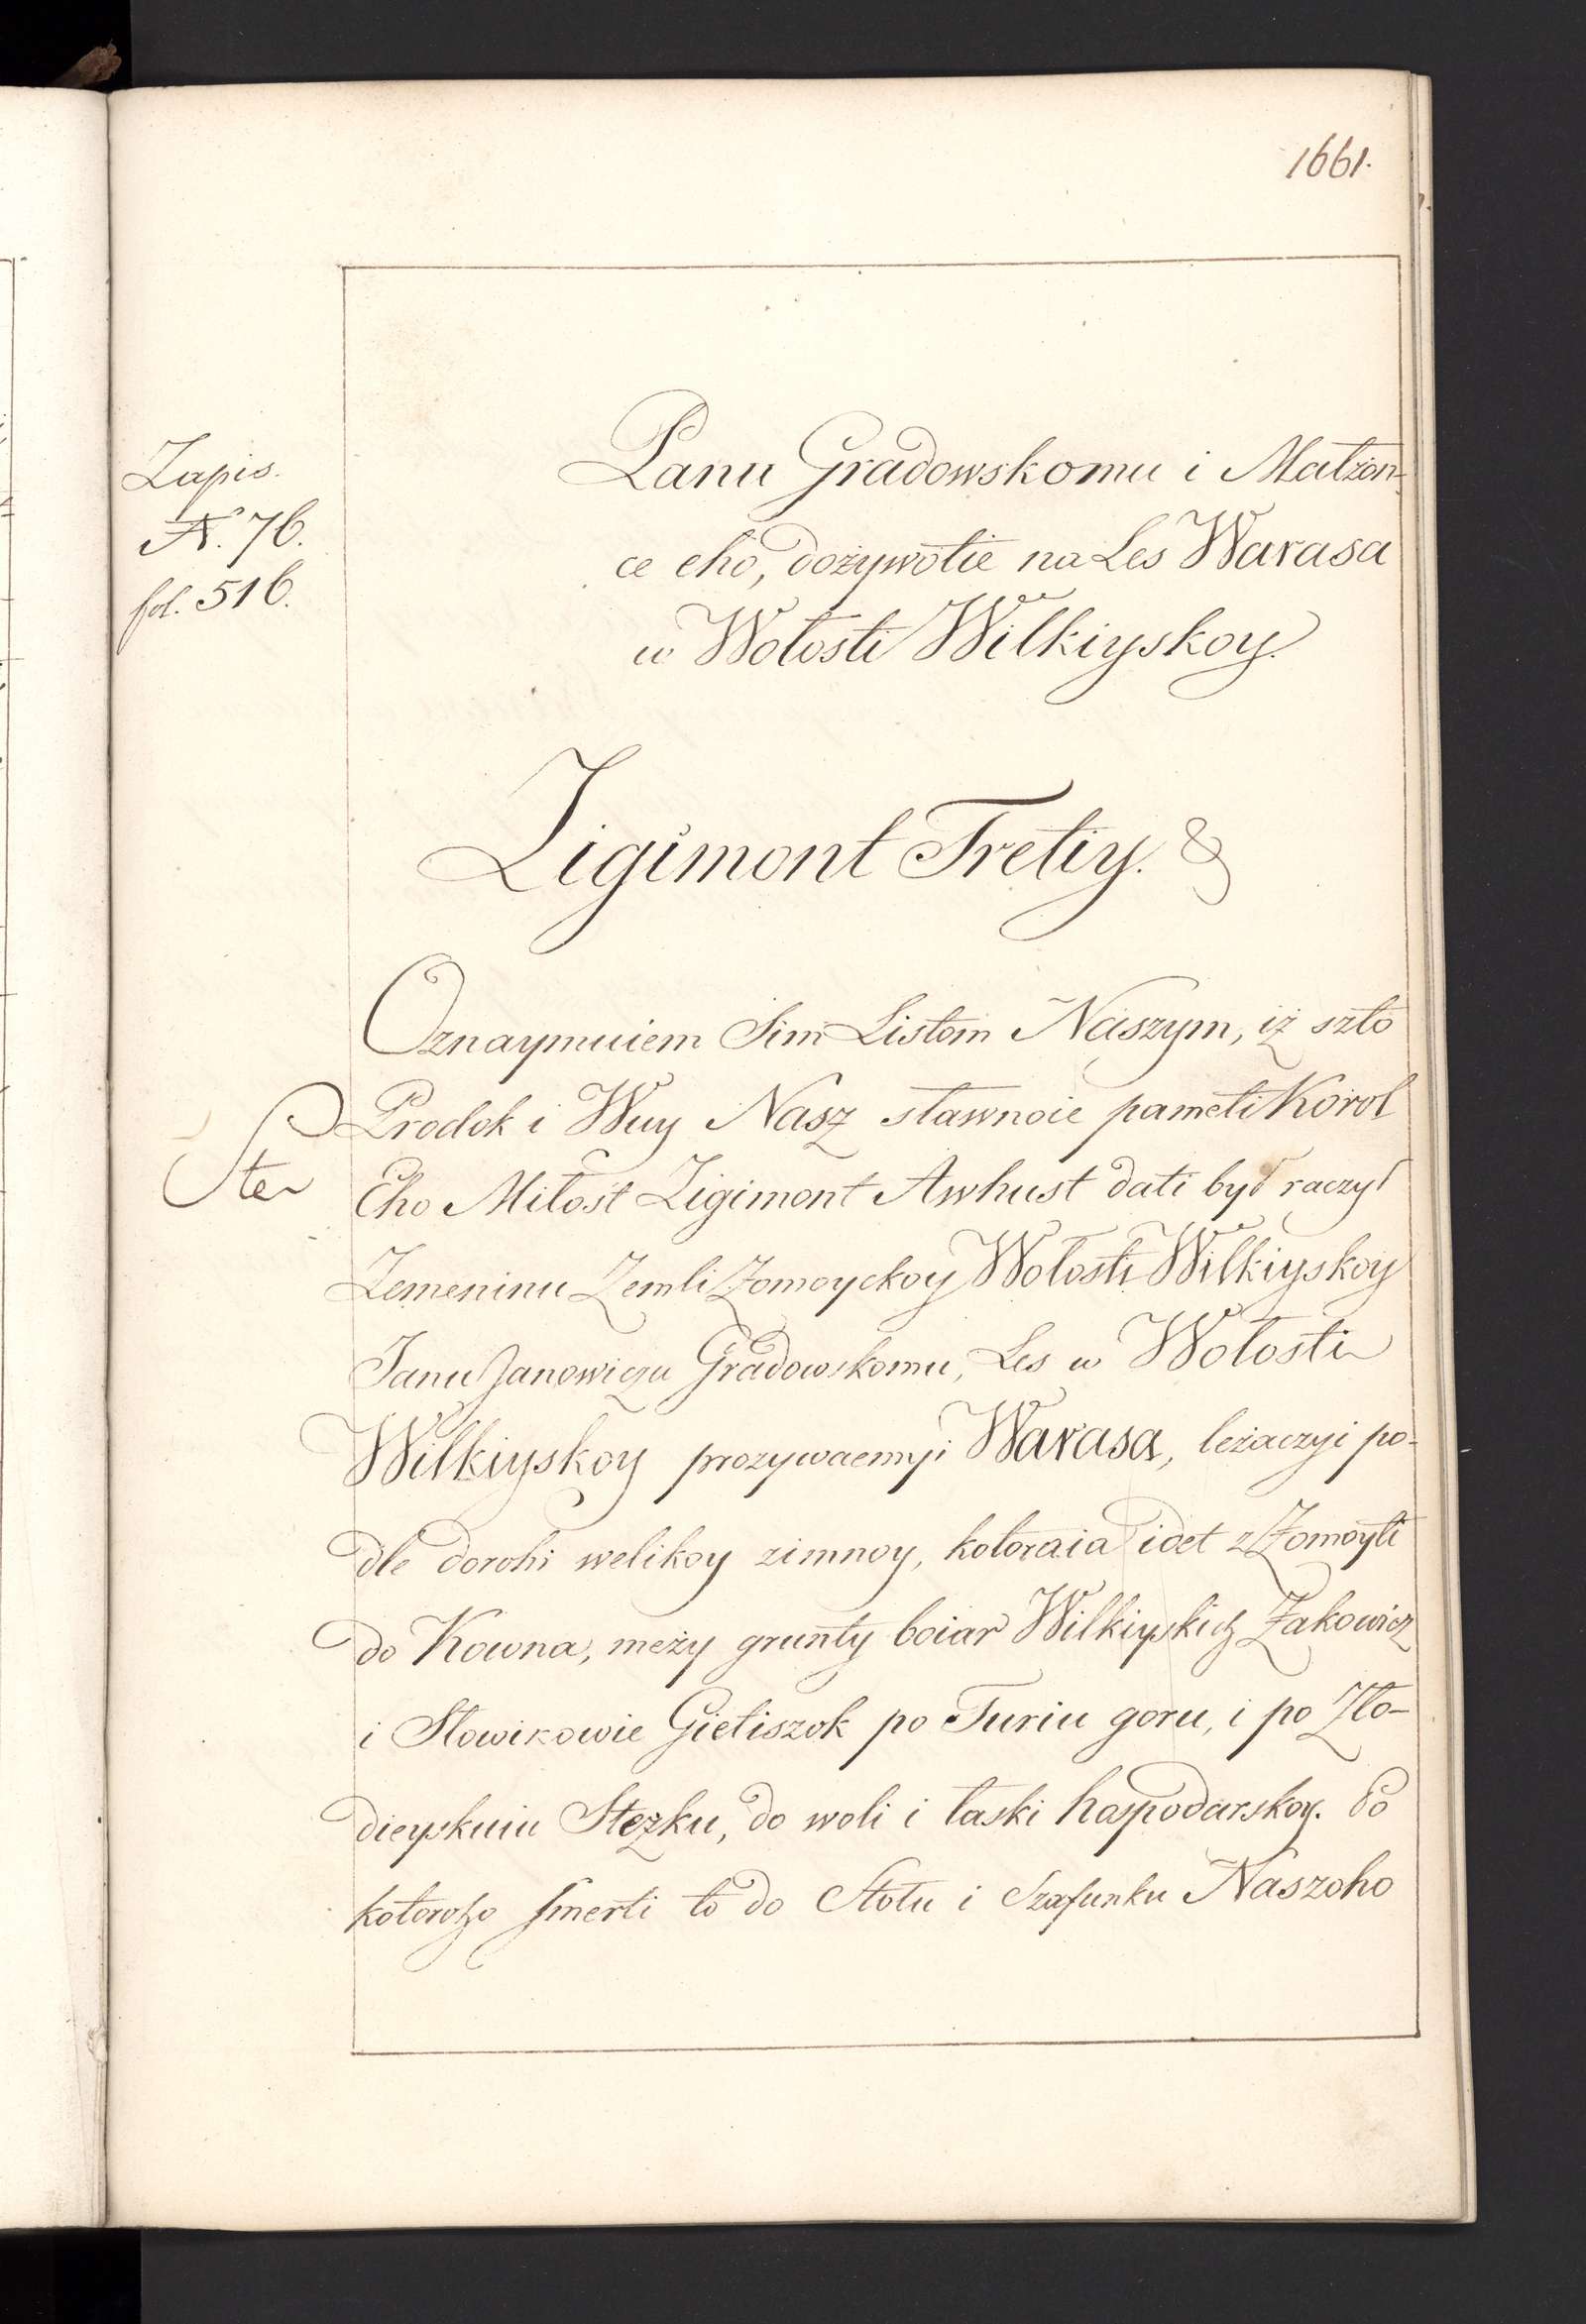 1661.
Zapis.
N. 76.
fol. 516.
Panu Gradowskomu i Małżon-
ce eho, dożywotie na Les Warasa
w Wołosti Wilkiyskoy.
Zigimont Tretiy. &
Oznaymuiem Sim Listom Naszym, iż szto
Prodok i Wuy Nasz sławnoie pameti Korol
Eho Miłost Zigimont Awhust dati był raczył
Zemeninu Zemli Żomoyckoy Wołosti Wilkiyskoy
Janu Janowiczu Gradowskomu, Les w Wołosti
Wilkiyskoy prozywaemyi Warasa, leżaczyi po-
dle dorohi welikoy zimnoy, kotoraia idet z Żomoyti
do Kowna, meży grunty boiar Wilkiyskich Żakowicz
i Słowikowie Gietiszok po Turiu goru, i po Zło-
dieyskuiu Stezku, do woli i łaski hospodarskoy. Po
kotoroho smerti to do Stołu i Szafunku Naszoho